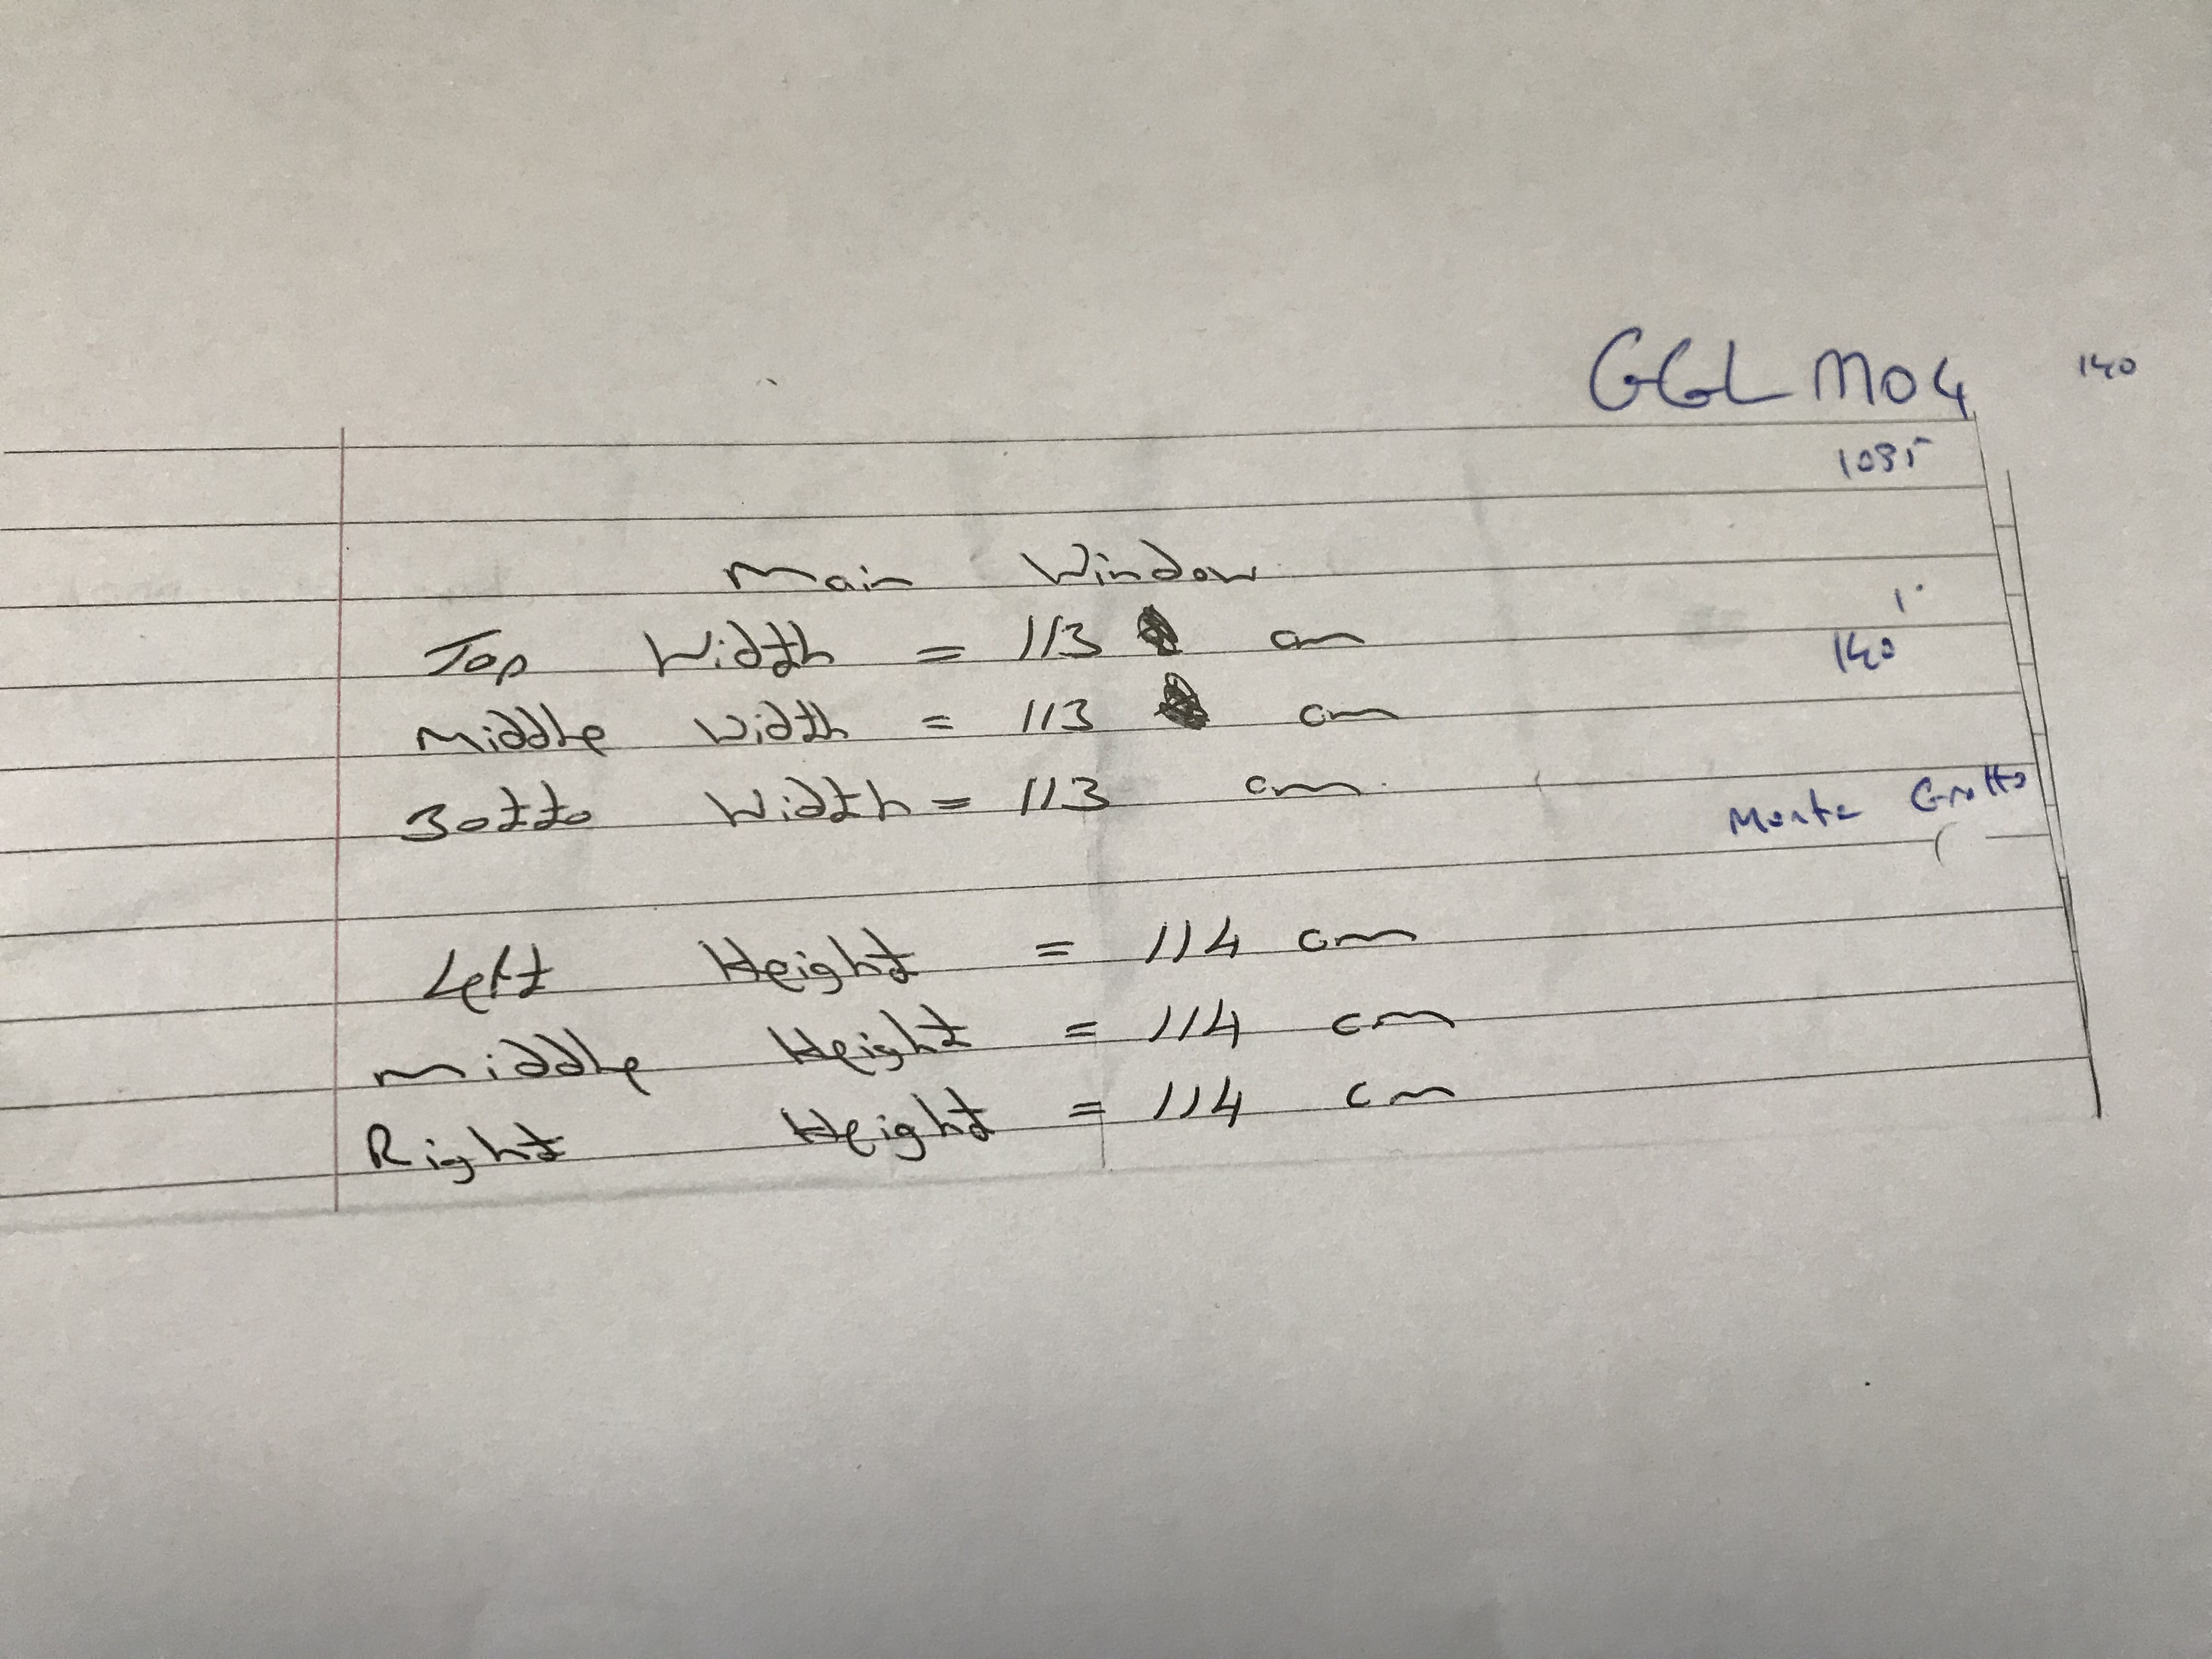 GGL M04 140
1085
Main Window
Top Width = 113 cm
140
Middle Width = 113 cm
Botto Width = 113 cm
Grotto
Left Height = 114 cm
Middle Height = 114 cm
Right Height = 114 cm